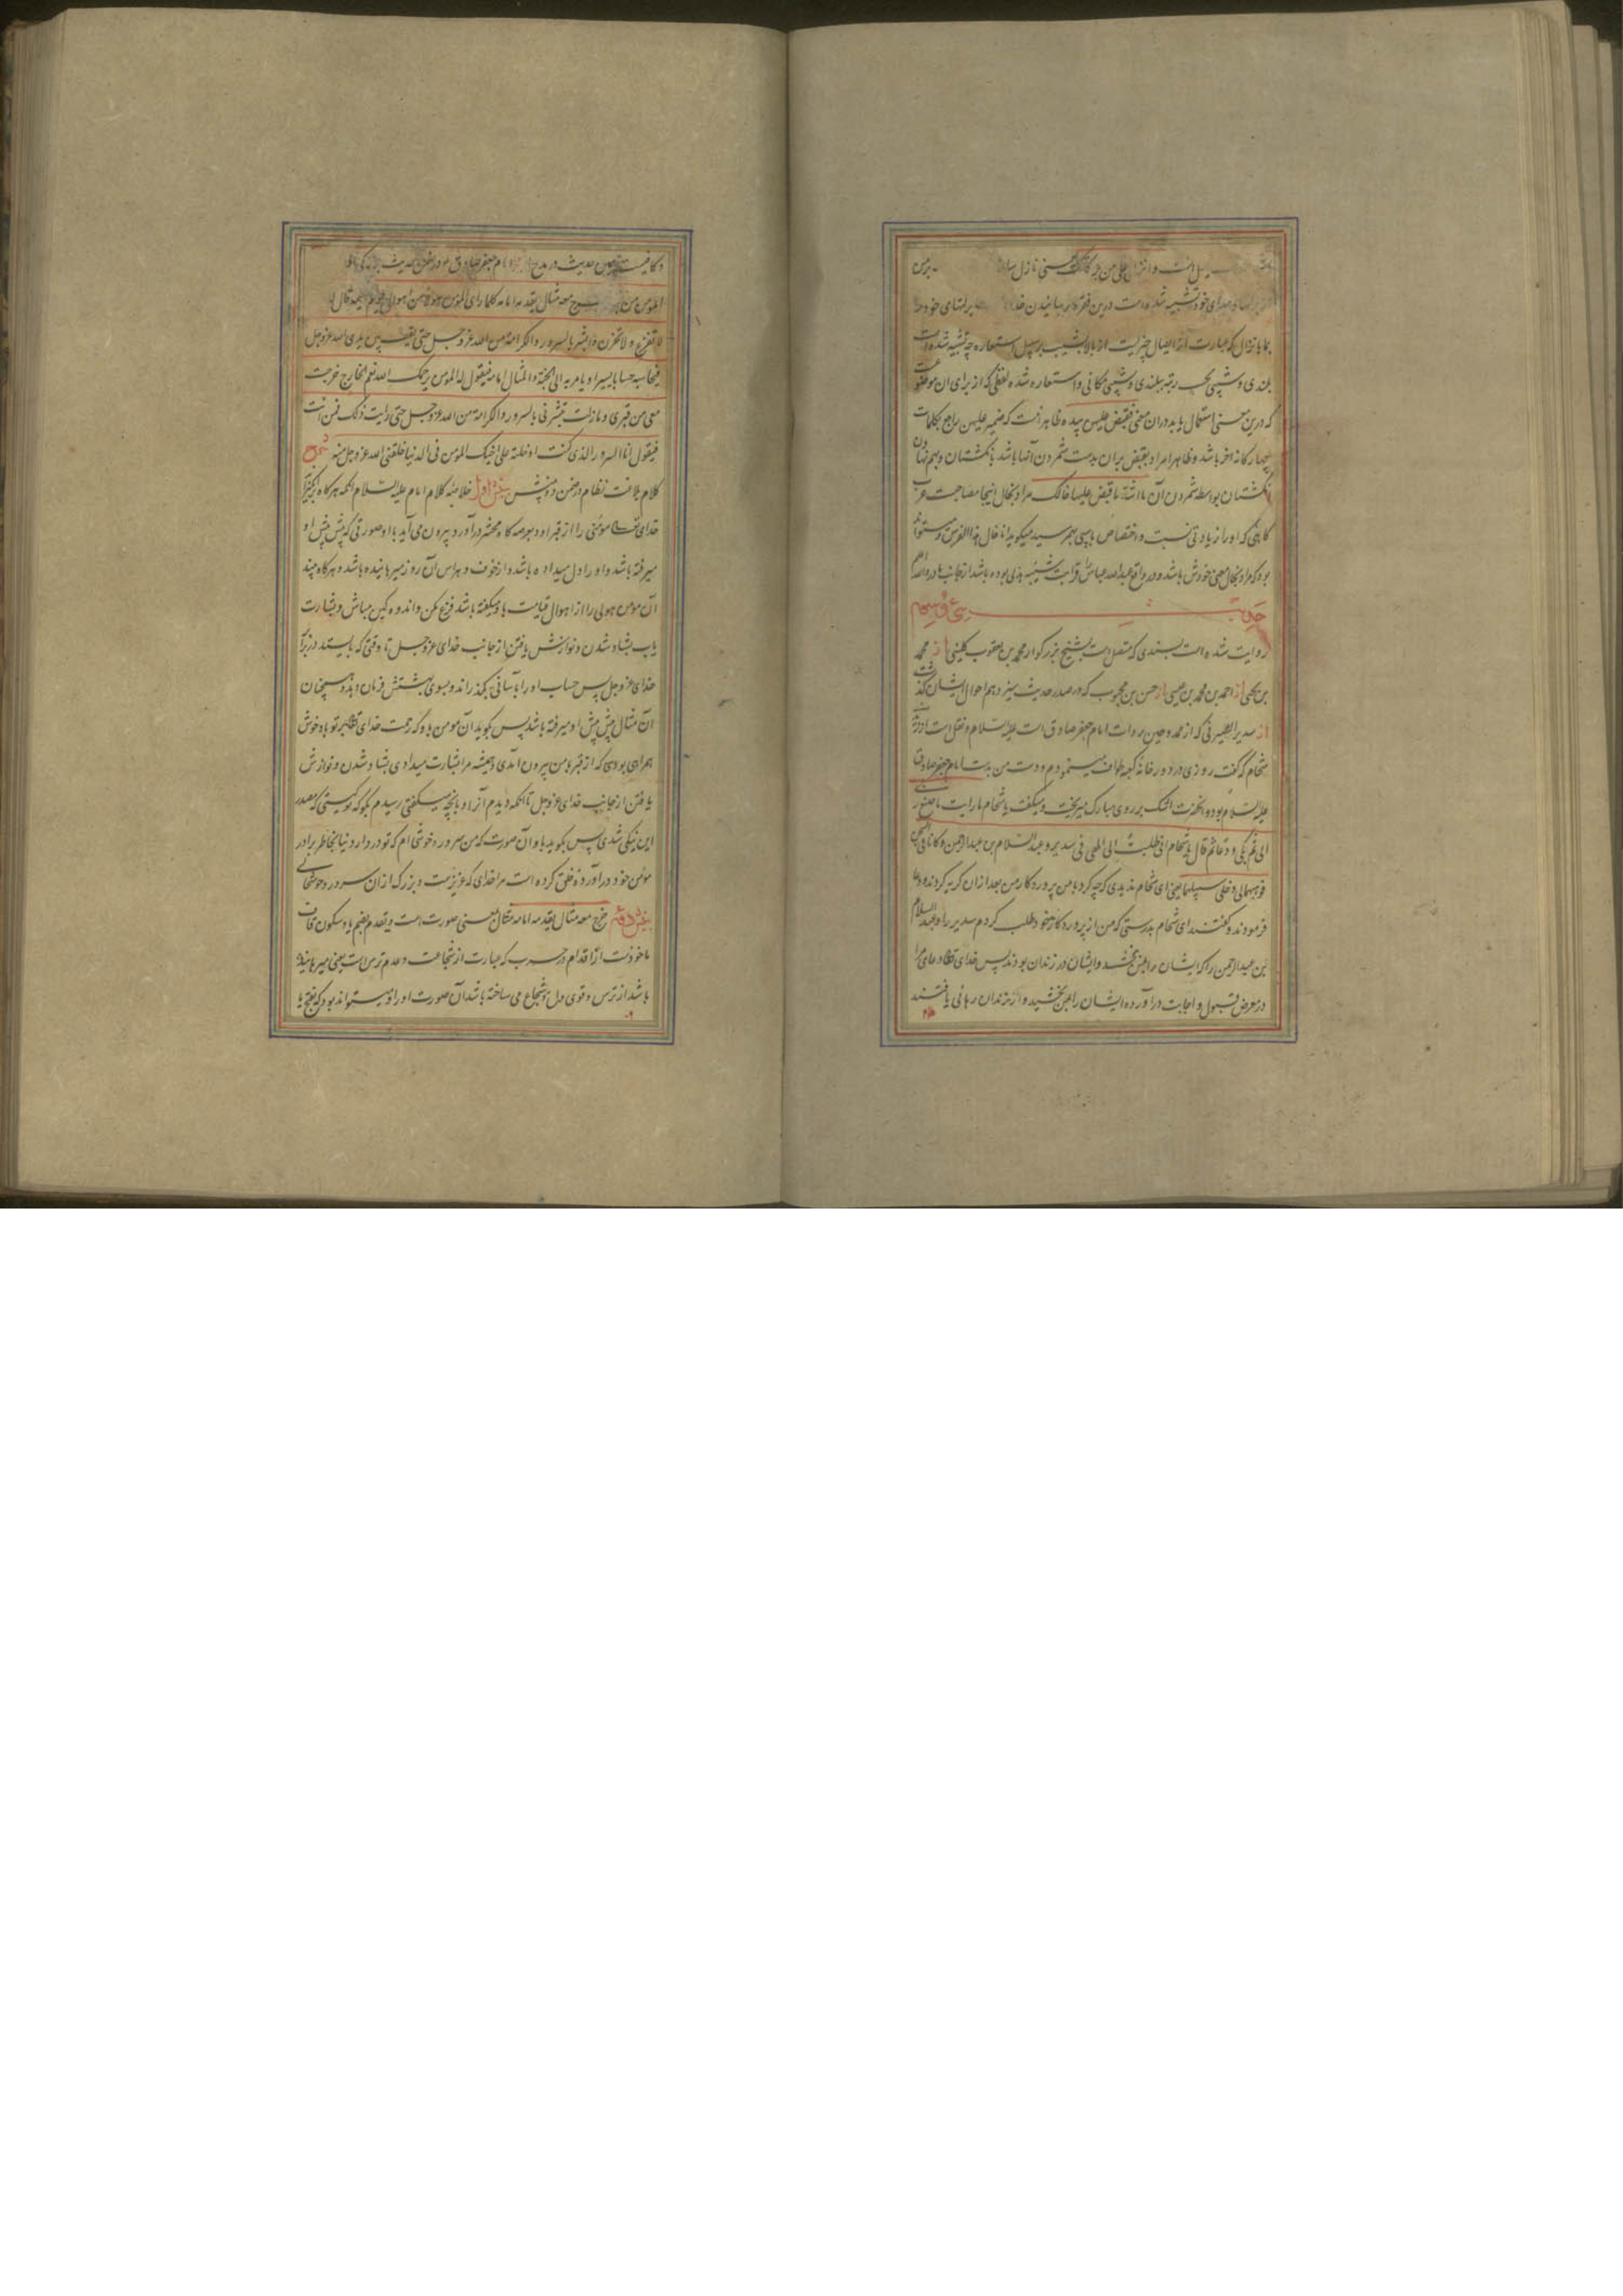 سبیل است و انزل علی من برکاتک یعنی نازل ساز
خود تشبیه شده است درین فقره رسانیدن خدا برکتهای خود را
بما بانزال که عبارت از ایصال چیزیست از بالا بشیب بر سبیل استعاره چه تشبیه شده است
بلندی و شیبی بحسب رتبه ببلندی و شیبی مکانی و استعاره شده لفظی که از برای آن موضوعست
که درین معنی استعمال یابد در آن معنی فقبض علیهن بیده ظاهر آنست که ضمیر علیهن راجع بکلمات
چهارگانه اخر باشد و ظاهرا مراد بقبض بران بدست شمردن آنها باشد بانگشتان و بهم نهادن
انگشتان بواسطه شمردن آن
کاهی که او را زیادتی نسبت و اختصاص بچیزی بهم رسید میگوید انا خال هذا الفرس و میتواند
بود که مراد بخال معنی خودش باشد و در واقع عبدالله عباس را قرابت بشیبه هذلی بوده باشد از جانب مادر والله اعلم
حدیث سی و سیم
روایت شده است بسندی که متصل است بشیخ بزرگوار محمد بن یعقوب کلینی از محمد
بن یحیی از احمد بن محمد بن عیسی از حسن بن محبوب که در صدر حدیث سیزدهم احوال ایشان گذشت
از سدیر الصیرفی که از ممدوحین روات امام جعفر صادق است علیه السلام و نقل است از زید
شحام که گفت روزی در دور خانه کعبه طواف مینمودم و دست من بدست امام جعفر صادق
علیه السلام بود و آنحضرت اشک بر روی مبارک میریخت و میگفت یا شحام ما رایت ما صنع ربی
الی ثم بکی و دعا ثم قال یا شحام انی طلبت الی الهی فی سدیر و عبد السلام بن عبد الرحمن و کانا فی السجن
فوهبهما لی و خلی سبیلهما یعنی ای شحام ندیدی که چه کرد با من پروردکار من بعد ازان کریه کردند و دعا
فرمودند و گفتند ای شحام بدرستی که من از پروردکار خود طلب کردم سدیر را و عبد السلام
بن عبد الرحمن را که ایشان را بمن بخشد و ایشان در زندان بودند پس خدای تعالی دعای مرا
در معرض قبول و اجابت درآورده ایشان را بمن بخشید و از زندان رهائی یافتند
و کافیست همین حدیث در مدح امام جعفر صادق
المومن من خرج معه مثال یقدمه امامه کلما رای المومن هولا من اهوال یوم القیمه قال له
لا تفزع و لا تحزن و ابشر بالسرور و الکرامة من الله عز و جل حتی یقف بین یدی الله عز و جل
فیحاسبه حسابا یسیرا و یامر به الی الجنة و المثال امامه فیقول له المومن یرحمک الله نعم الخارج خرجت
معی من قبری و مازلت تبشرنی بالسرور و الکرامة من الله عز و جل حتی رایت ذلک فمن انت
فیقول انا السرور الذی کنت ادخلته علی اخیک المومن فی الدنیا خلقنی الله عز و جل منه شرح
کلام بلاغت نظام در ضمن دو بخش بخش اول خلاصه کلام امام علیه السلام آنکه هرکاه برانگیزد
خدای تعالی مؤمنی را از قبر او و بعرصه گاه محشر درآورد بیرون می آید با او صورتی که پیش پیش او
میرفته باشد و او را دل میداده باشد و از خوف و هراس آن روز میرهانیده باشد و هرکاه بیند
آن مومن هولی را از اهوال قیامت باو میگفته باشد فزع مکن و اندوهگین مباش و بشارت
یاب بشاد شدن و نوازش یافتن از جانب خدای عز و جل تا وقتی که بایستد در برابر
خدای عز و جل پس حساب او را بآسانی بگذراند و بسوی بهشتش فرمان دهد و همچنان
آن مثال پیش پیش او میرفته باشد پس گوید آن مومن باو که رحمت خدای تعالی بر تو باد خوش
همراهی بودی که از قبر با من بیرون آمدی و همیشه مرا بشارت میدادی بشاد شدن و نوازش
یافتن از جانب خدای عز و جل تا آنکه دیدم آنرا و بانچه میگفتی رسیدم بگو که تو کیستی که مصدر
این نیکی شدی پس بگوید باو آن صورت که من سرور و خوشی ام که تو در دار دنیا بخاطر برادر
مؤمن خود درآورده خلق کرده است مرا خدای که عزیزست و بزرک از آن سرور و خوشحالی
بخش دوم خرج معه مثال یقدمه امامه مثال بمعنی صورت است و یقدم بضم یا و سکون قاف
ماخوذست از اقدام در حرب که عبارت از شجاعت و عدم ترس است یعنی میرهانیده
باشد از ترس و قوی دل و شجاع می ساخته باشد آن صورت او را و میتواند بود که بفتح یا